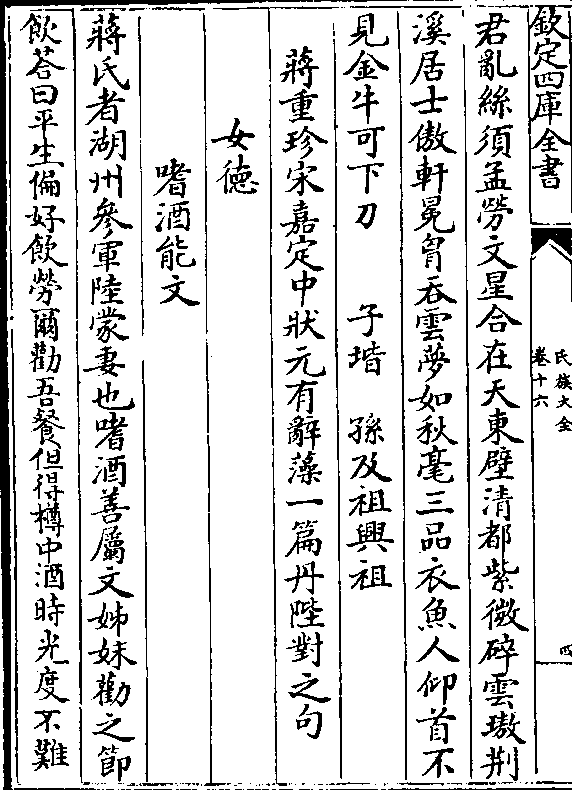 欽定四庫全書
氏族大全
卷十六
四
君亂絲須孟勞文星合在天東壁清都紫微碎雲璈荆
溪居士傲軒冕胷吞雲夢如秋毫三品衣魚人仰首不
見金牛可下刀　子堦　孫及祖興祖
蔣重珍宋嘉定中狀元有辭藻一篇丹陛對之句
女德
嗜酒能文
蔣氏者湖州參軍陸蒙妻也嗜酒善屬文姊妹勸之節
飲荅曰平生偏好飲勞爾勸吾餐但得樽中酒時光度不難